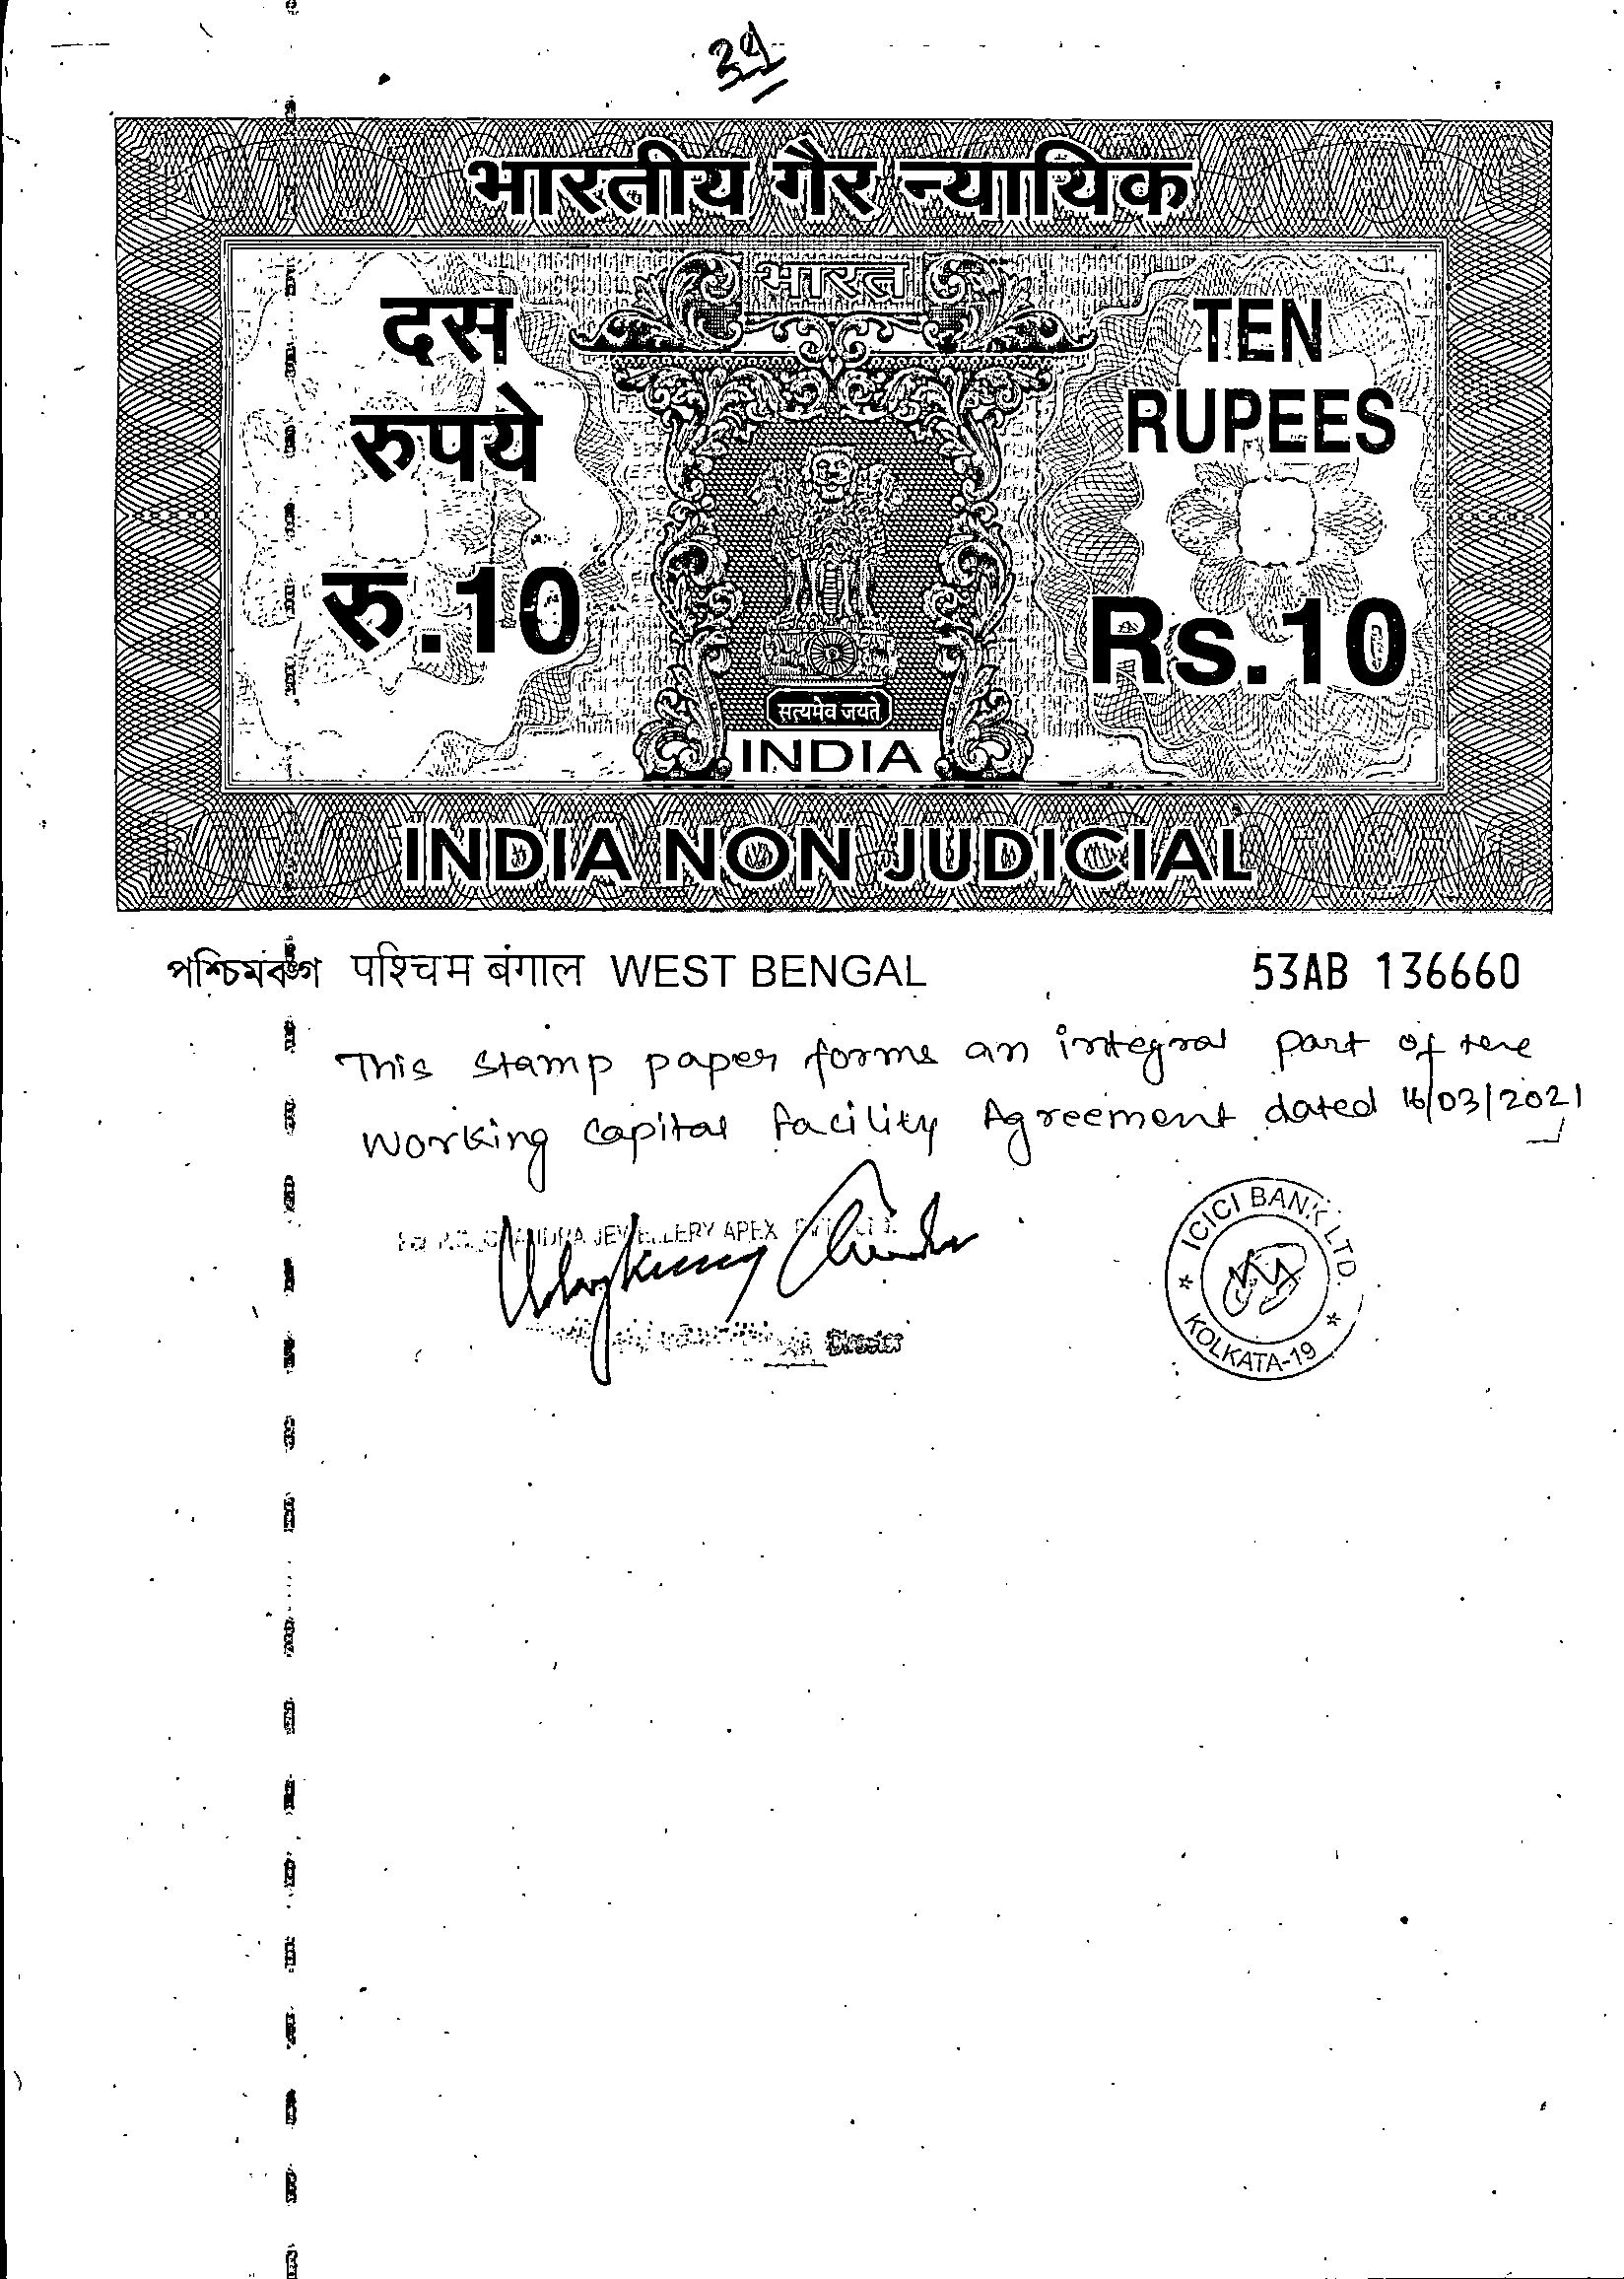 भारतीय गैर न्यायिक
भारत
दस
रुपये
रु.10
TEN
RUPEES
Rs.10
सत्यमेव जयते
INDIA
INDIA NON JUDICIAL
পশ্চিমবঙ্গ पश्चिम बंगाल WEST BENGAL 53AB 136660
This stamp paper forms an integral part of the
Working Capital Facility Agreement dated 16/03/2021
CHANDRA JEWELLERY APEX PVT. LTD.
Director
ICICI BANK LTD.
* KOLKATA-19 *